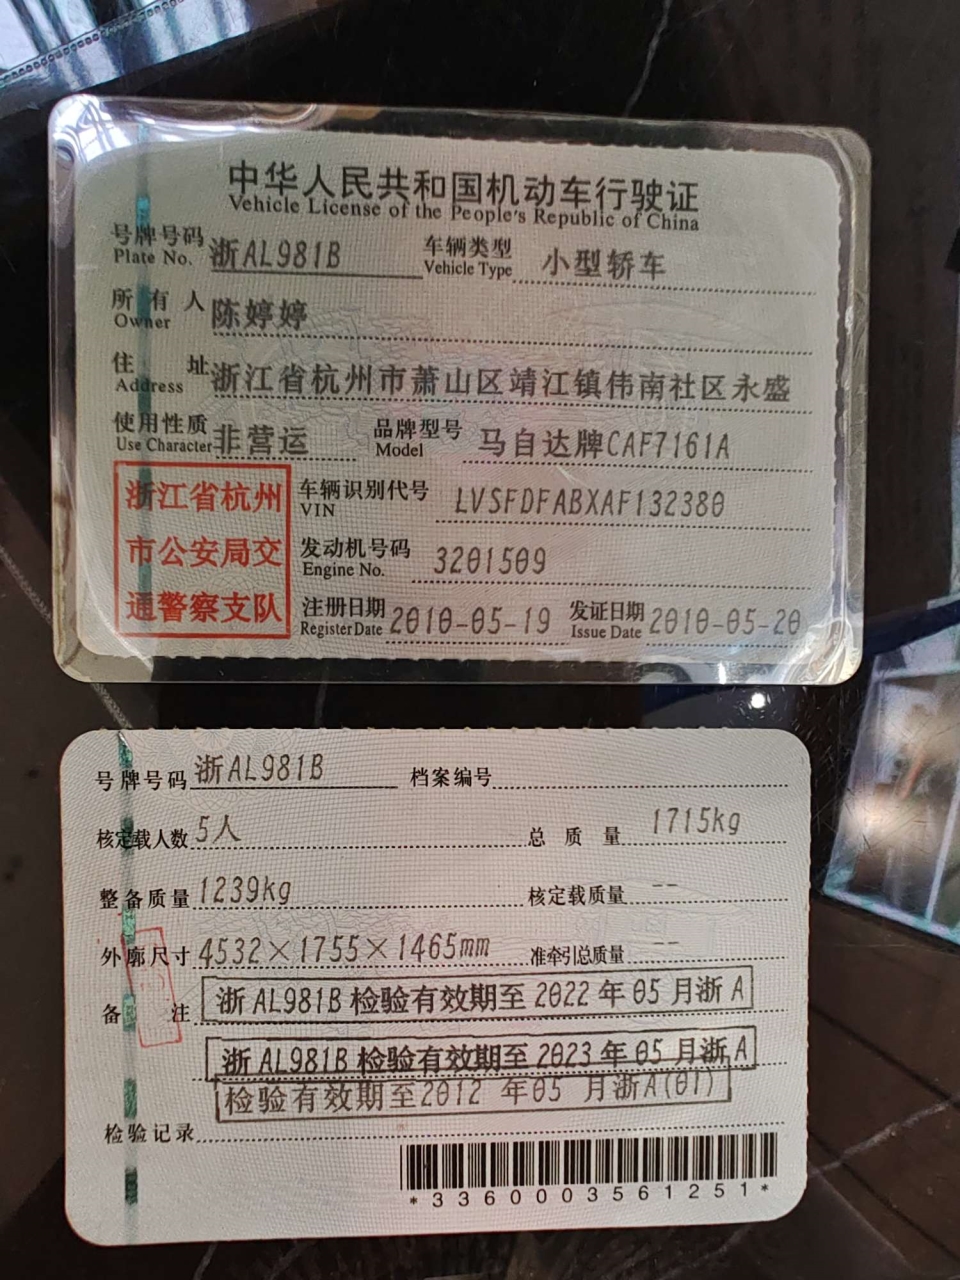 中华人民共和国机动车行驶证
Vehicle License of the People's Republic of China
号牌号码 浙AL981B 车辆类型 小型轿车
Plate No. Vehicle Type
所有人 陈婷婷
Owner
住址 浙江省杭州市萧山区靖江镇伟南社区永盛
Address
使用性质 非营运 品牌型号 马自达牌CAF7161A
Use Character Model
浙江省杭州
市公安局交
通警察支队
车辆识别代号 LVSFDFABXAF132380
VIN
发动机号码 3201509
Engine No.
注册日期 2010-05-19 发证日期 2010-05-20
Register Date Issue Date
号牌号码 浙AL981B 档案编号
核定载人数 5人 总质量 1715kg
整备质量 1239kg 核定载质量 --
外廓尺寸 4532×1755×1465mm 准牵引总质量 --
备注 浙AL981B检验有效期至2022年05月浙A
浙AL981B检验有效期至2023年05月浙A
检验有效期至2012年05月浙A(01)
检验记录
*3360003561251*